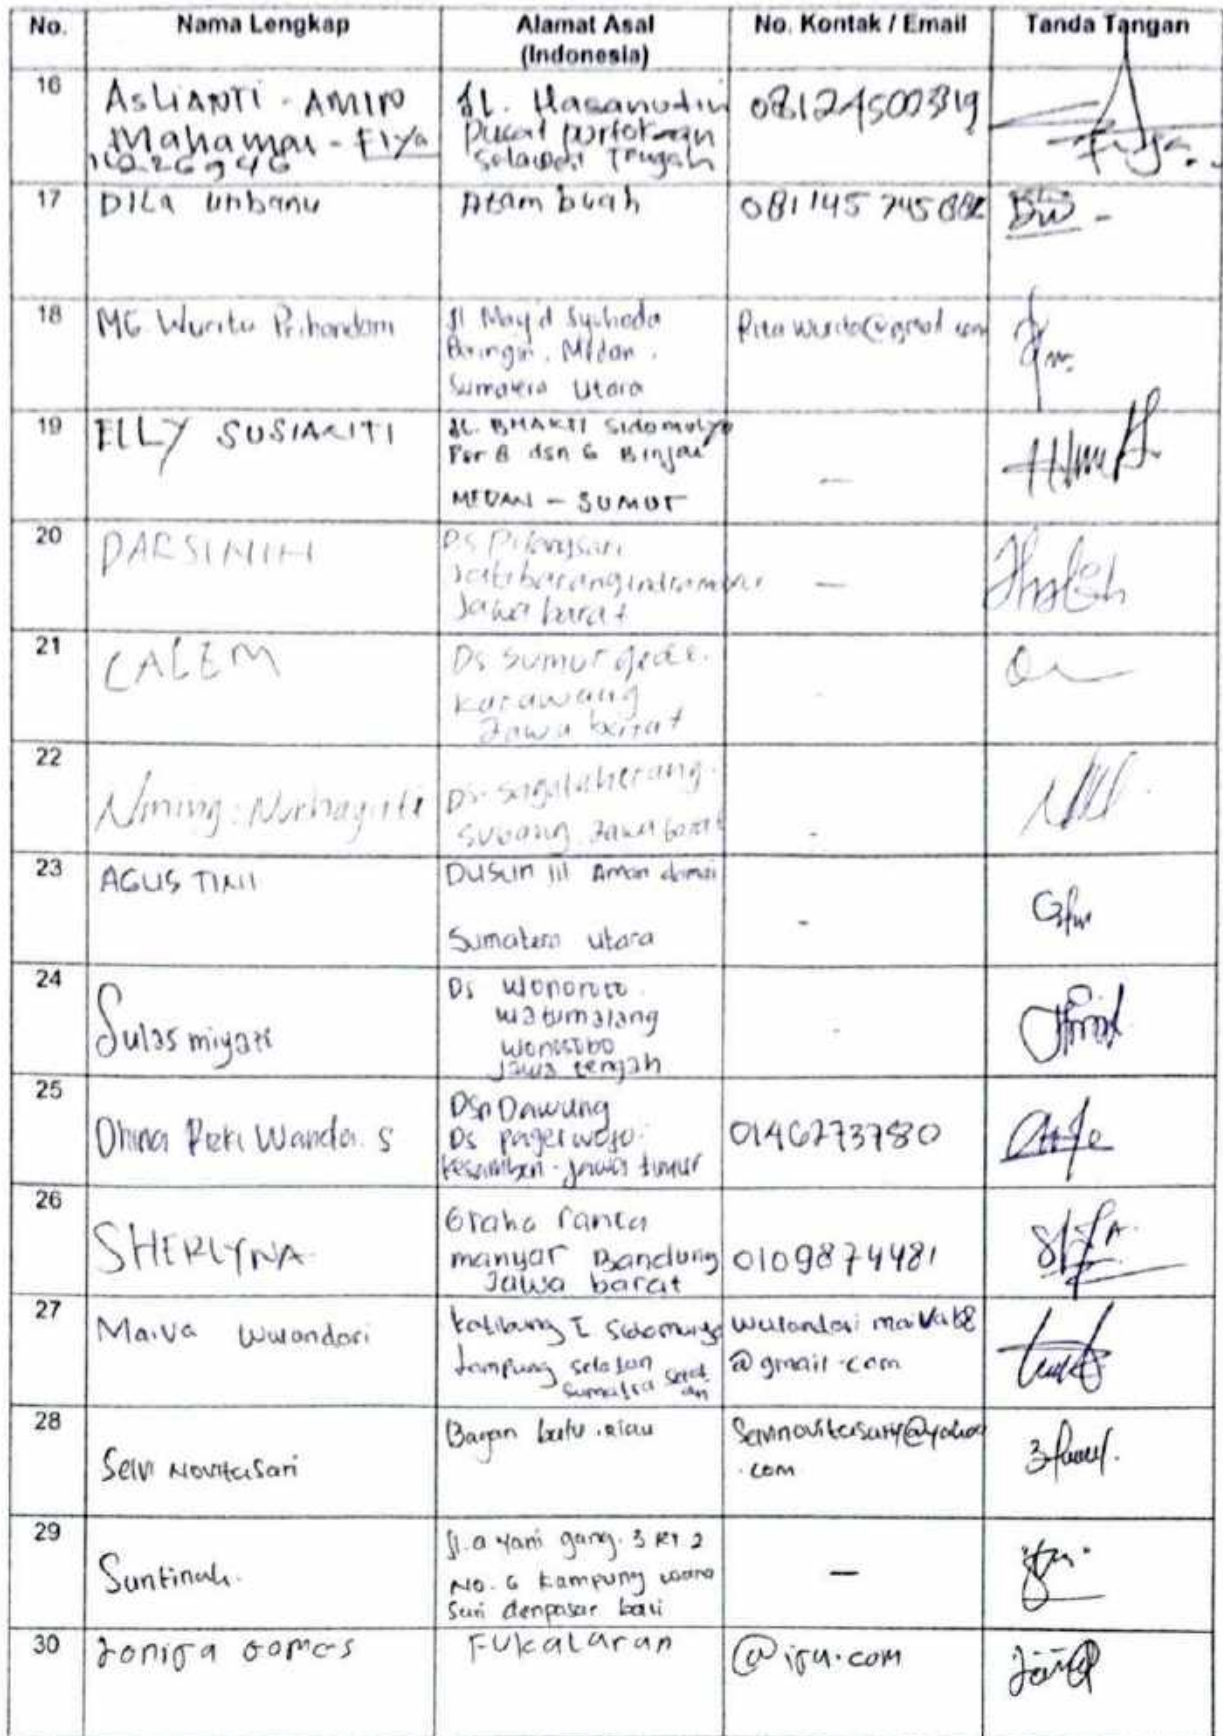 No. Nama Lengkap Alamat Asal (Indonesia) No. Kontak / Email Tanda Tangan
16
ASLIANTI - AMIN
Mahamai - Fiya
Jl. Hasanudin
Pusat
Sulawesi Tengah
081245003319
17
Dila unbanu
Atambuah
18
MG Wurita Prihandam
Jl Masjid Syuhada
Beringin. Medan.
Sumatera Utara
19
ELLY SUSIANTI
JL. BHAKTI Sidomulyo
Psr 8 dsn 6 Binjai
MEDAN - SUMUT
-
20
DARSINIH
Ds Pilangsari
Jatibarang indramayu
Jawa barat
-
21
CALEM
Ds Sumur gede.
Karawang
Jawa barat
-
22
Nining: Nurhayati
Ds. Sagalaherang.
Subang. Jawa barat
-
23
AGUS TINI
Dusun III Aman damai
Sumatera utara
-
24
Sulasmiyati
Ds Wonoroto.
Watumalang
Wonosobo
Jawa tengah
-
25
Dhina Wanda. S
Dsn Dawung
Ds pagerwojo.
kesamben - Jawa timur
0146273780
26
SHERLYNA
Graha ranca
manyar Bandung
Jawa barat
0109874481
27
Maiva Wulandari
Katibung I Sidomulyo
Lampung selatan
Sumatra Selatan
@gmail.com
28
Selvi Novitasari
Bagan batu. riau
Selvinovitasary@yahoo
.com
29
Suntinah.
Jl. a yani gang. 3 RT 2
No. 6 Kampung
Sari denpasar bali
-
30
gomes
Fukalaran